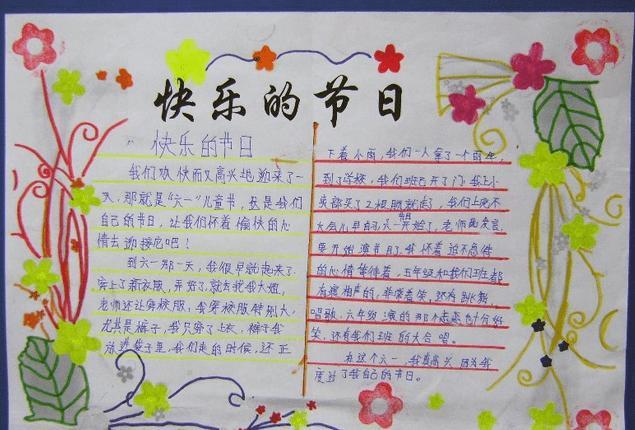 快乐的节日
快乐的节日
我们欢快而又高兴地迎来了一
天，那就是“六一”儿童节，这是我们
自己的节日，让我们怀着愉快的心
情去迎接它吧！
到六一那一天，我很早就起来了.
穿上了新衣服，弄好了，就去我大姐，
老师还让穿校服，我穿校服特别大，
尤其是裤子，我只穿了上衣，裤子我
放进袋子里，我们走的时候，还正
下着小雨，我们一人拿了一个雨伞，
到了学校，我们班已开了门，我上小
卖部买了2根
大会儿早自习，六一开始了，老师
要开始演节目了，我怀着迫不急待
的心情等待着，五年级和我们班都
有演相声的，非常着笑，还有跳舞，
唱歌，六年级演的那个 十分好
笑，还有我们班的大合唱。
在这个六一，我真高兴，因为我
度过了我自己的节日。